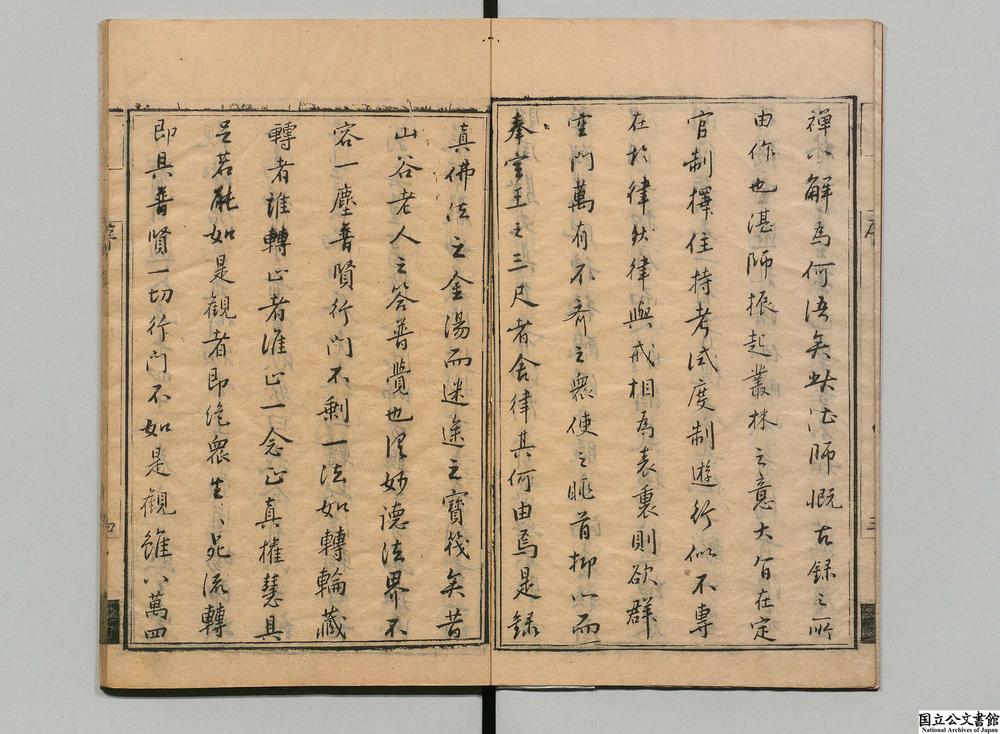 禪心解為何語矣此湛師慨古錄之所
由作也湛師振起叢林之意大旨在定
官制擇住持考試度制遊行似不專
在於律然律與戒相為表裏則欲群
空門萬有不齊之眾使之眠首抑心而
奉空王之三尺者舍律其何由焉是錄
真佛法之金湯而迷途之寶筏矣昔
山谷老人之答普覺也謂妙德法界不
容一塵普賢行門不剩一法如轉輪藏
轉者誰轉止者誰止一念正真權慧具
足若能如是觀者即絕眾生生死流轉
即具普賢一切行門不如是觀雖八萬四
序
三
四
国立公文書館
National Archives of Japan